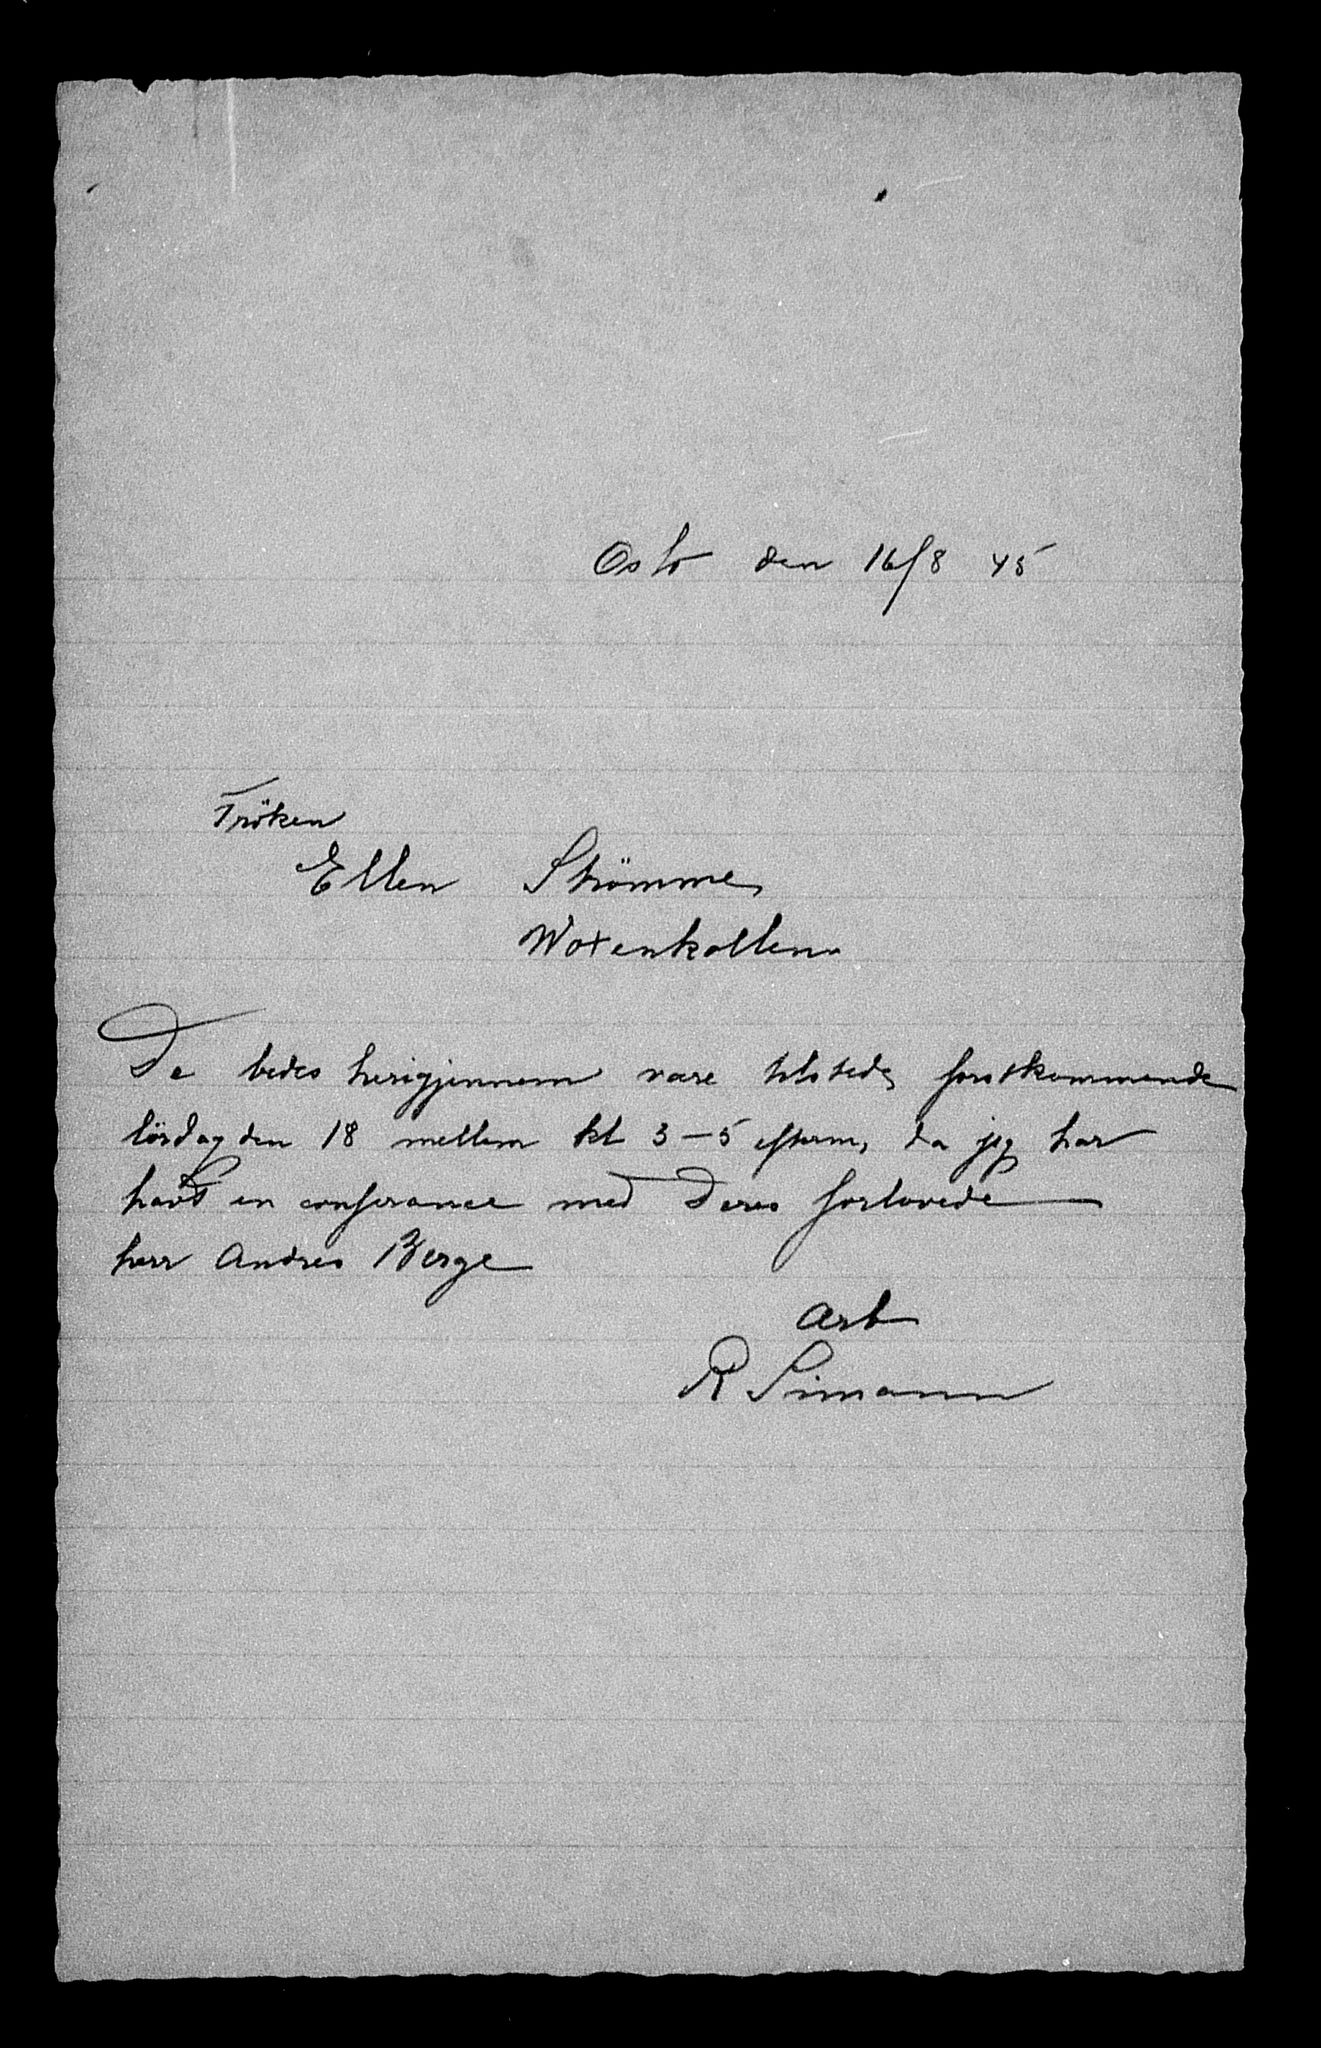 Oslo den 16/8 45
Fröken
Ellen Strömme,
Woxenkollen
De bedes herigjennem være tilstede, forstkommende
lördag den 18 mellem kl 3-5 efterm, da jeg har
havt en conferance med Deres forlovede
herr Andres Berge
Arb
R Simann